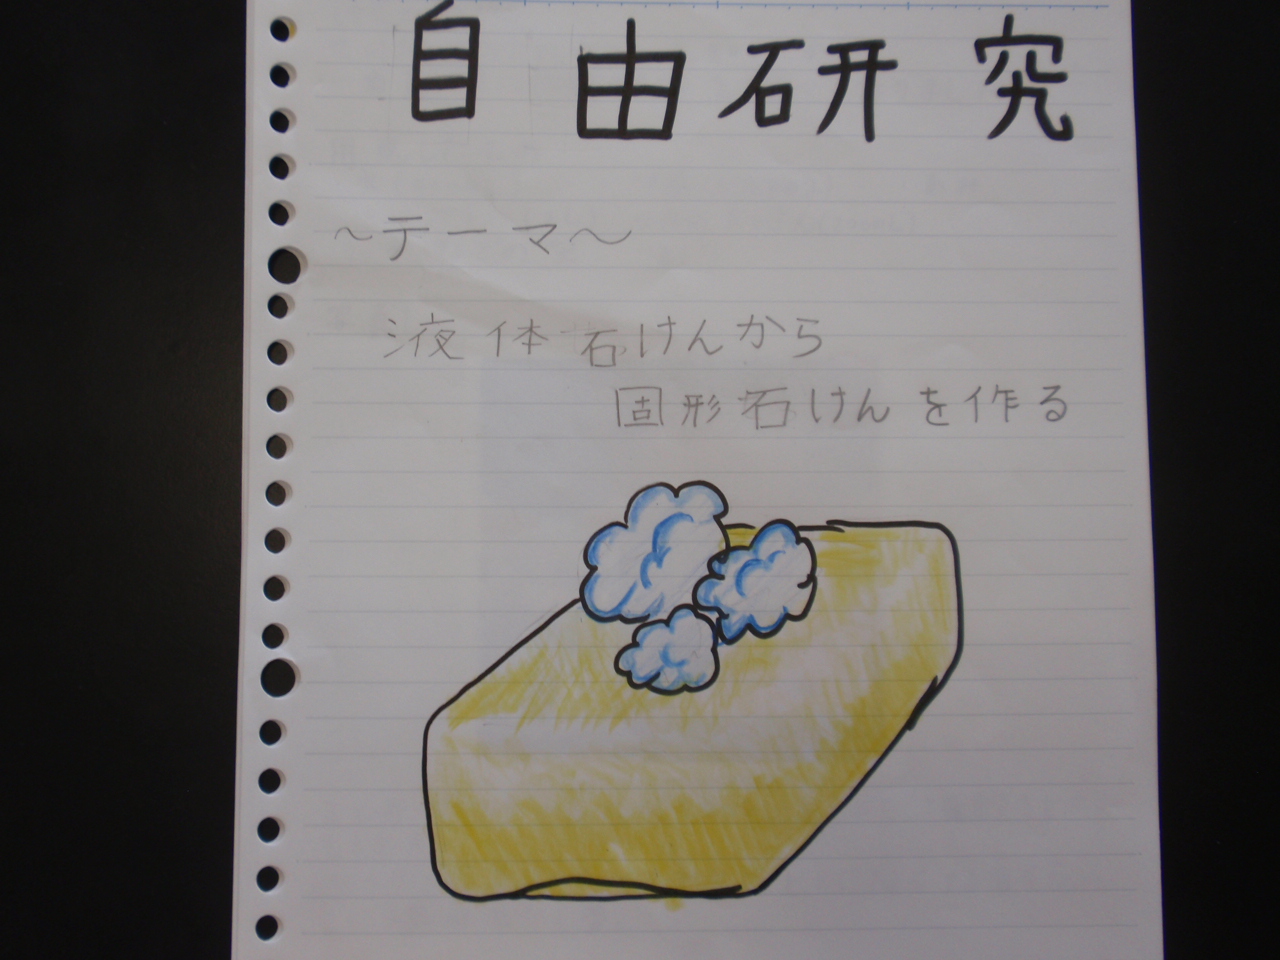 自由研究
～テーマ～
液体石けんから
固形石けんを作る